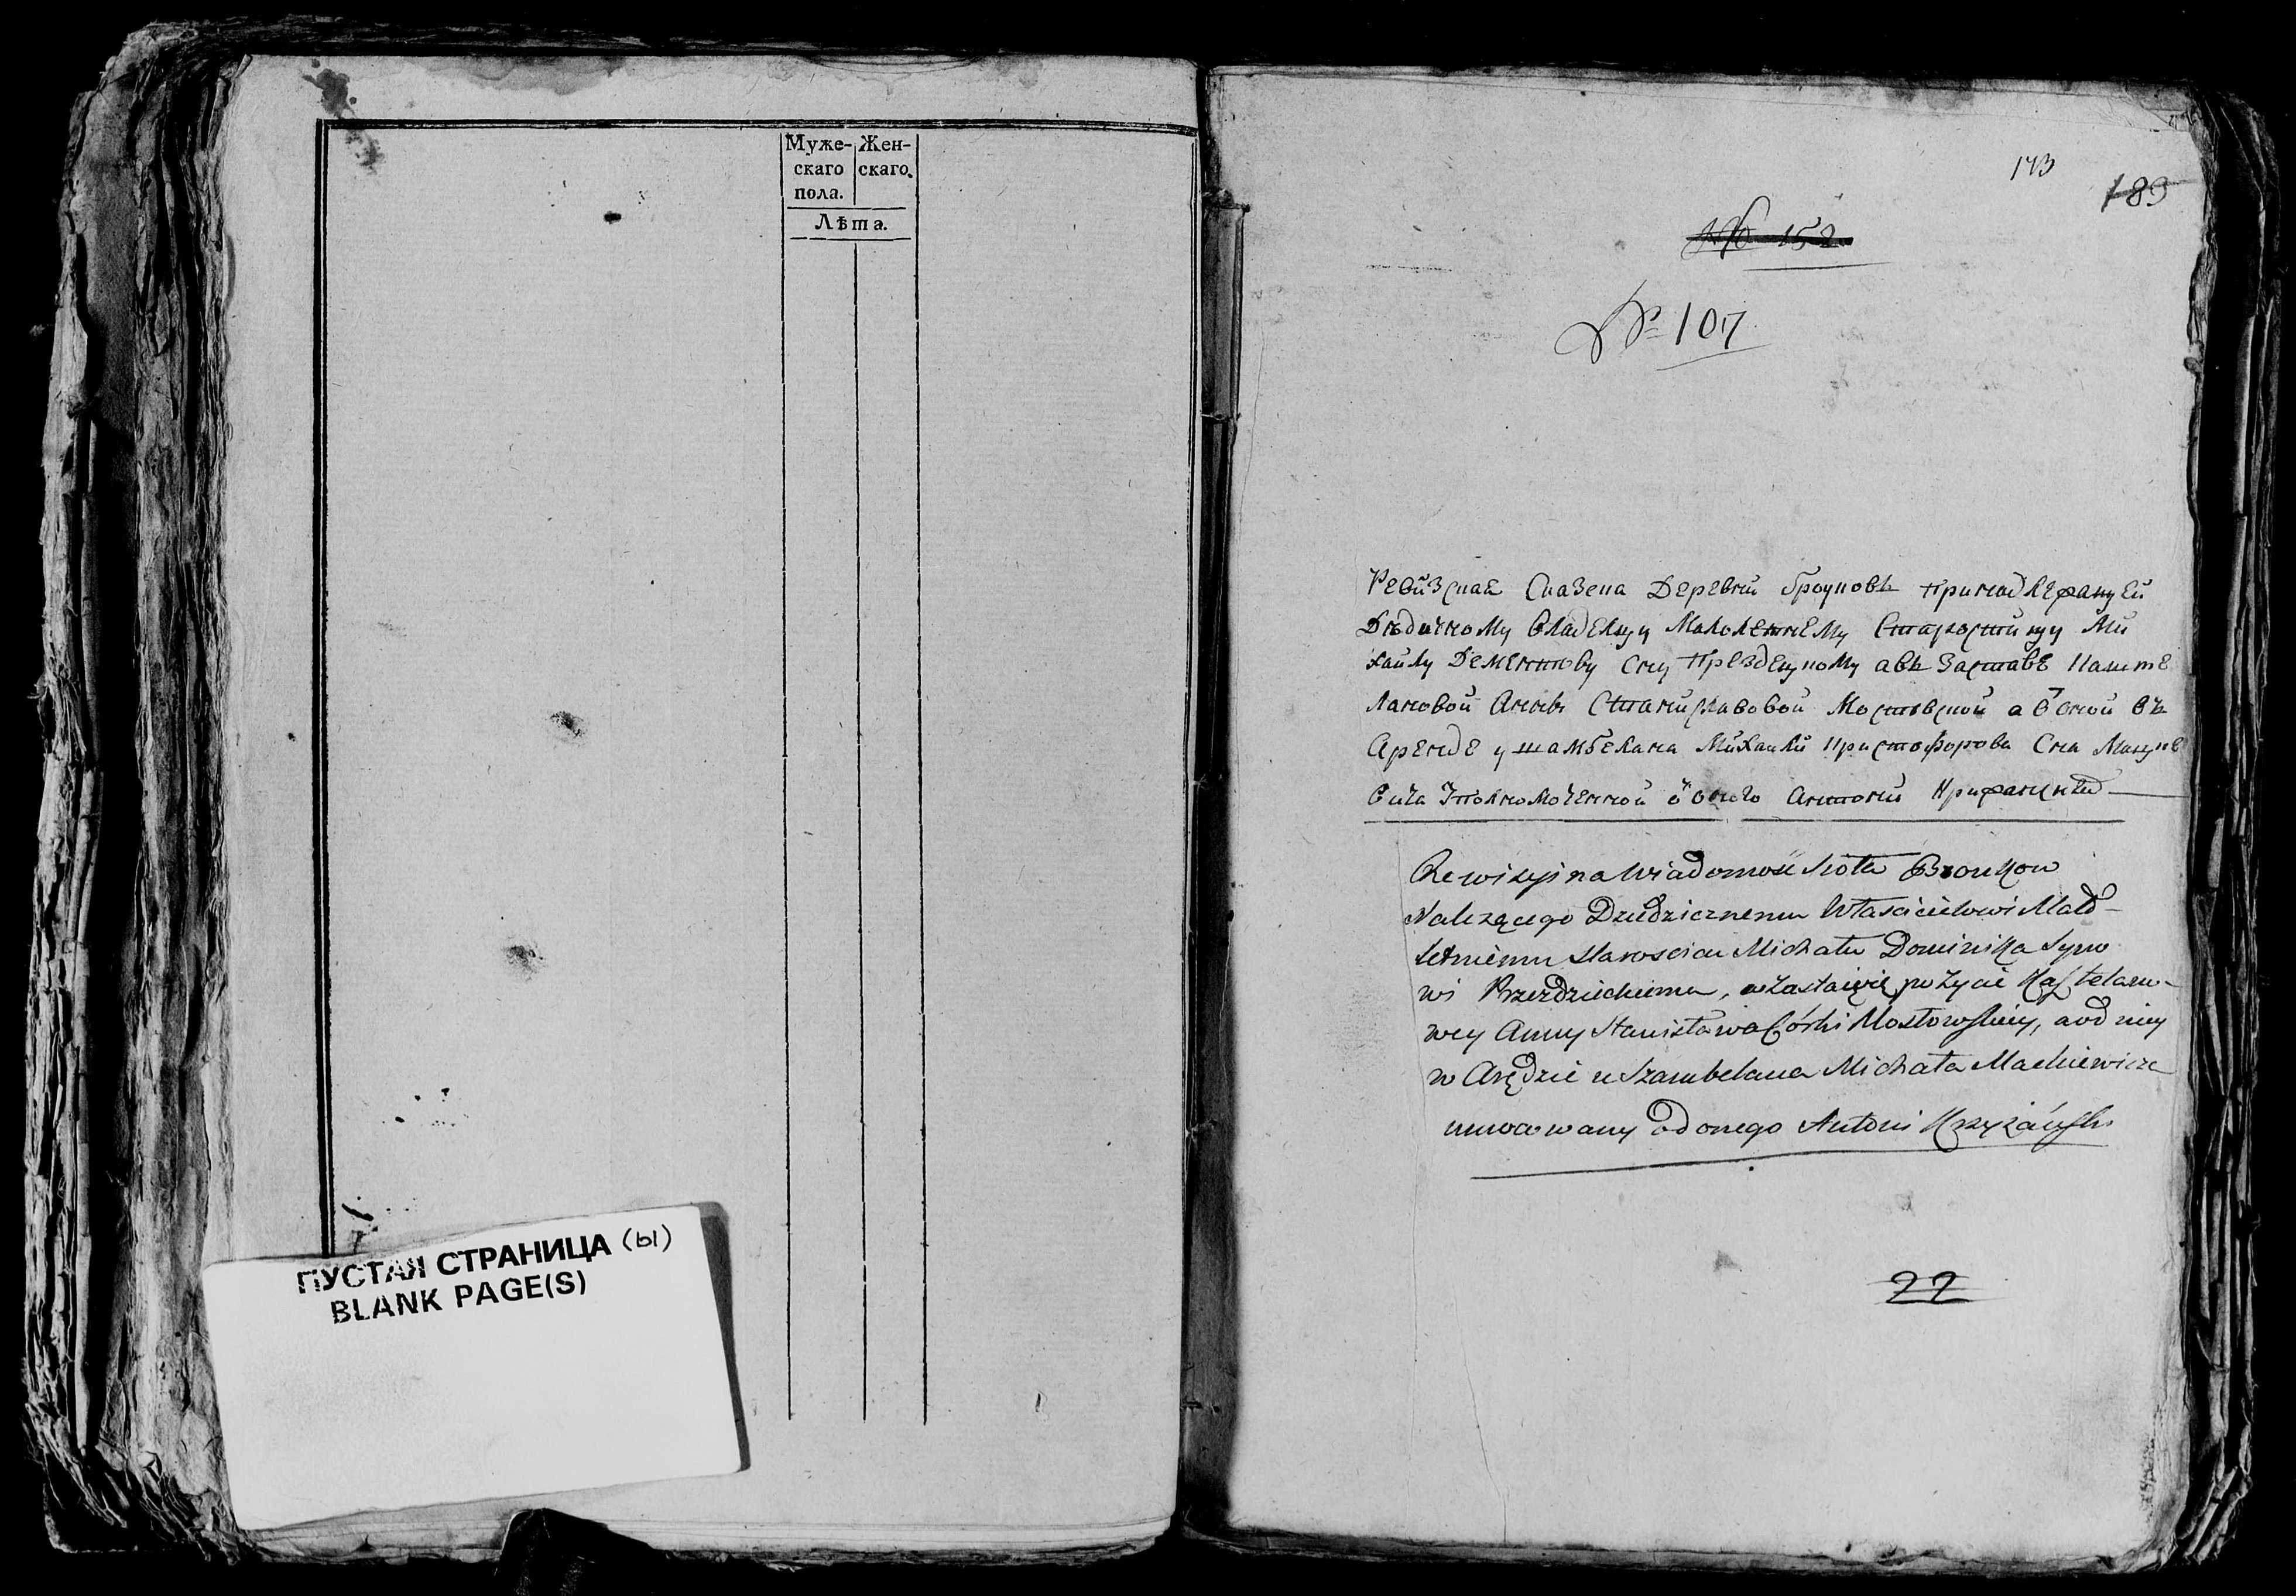 Муже-
скаго
пола.
Жен-
скаго.
Лѣта.
ПУСТАЯ СТРАНИЦА (ы)
BLANK PAGE(S)
173
189
No 152
№ 107
Ревизская Сказка Деревни Броуновъ
Дѣдичному Владелцу Малолетнему Старостицу Ми
хайлу авъ Заставе Каште
лановой Анны Станиславовой Мостовской а в оной въ
Аренде у шамбеляна Михаила Кристофорова Сна Мацке
вича Антоний
Rewizyina Wiadomość Sioła Brouków
Należącego Dziedzicznemu Właścicielowi Mało-
letniemu Starościcu Michału Dominika Syno
wi Przezdzieckiemu, w Zastawie po Zycie Kasztelano-
wey Anny Stanisława Córki Mostowskiey, a od niey
w Arędzie u Szambelana Michała Mackiewicza
umocowany od onego Antoni Krzyżański
22